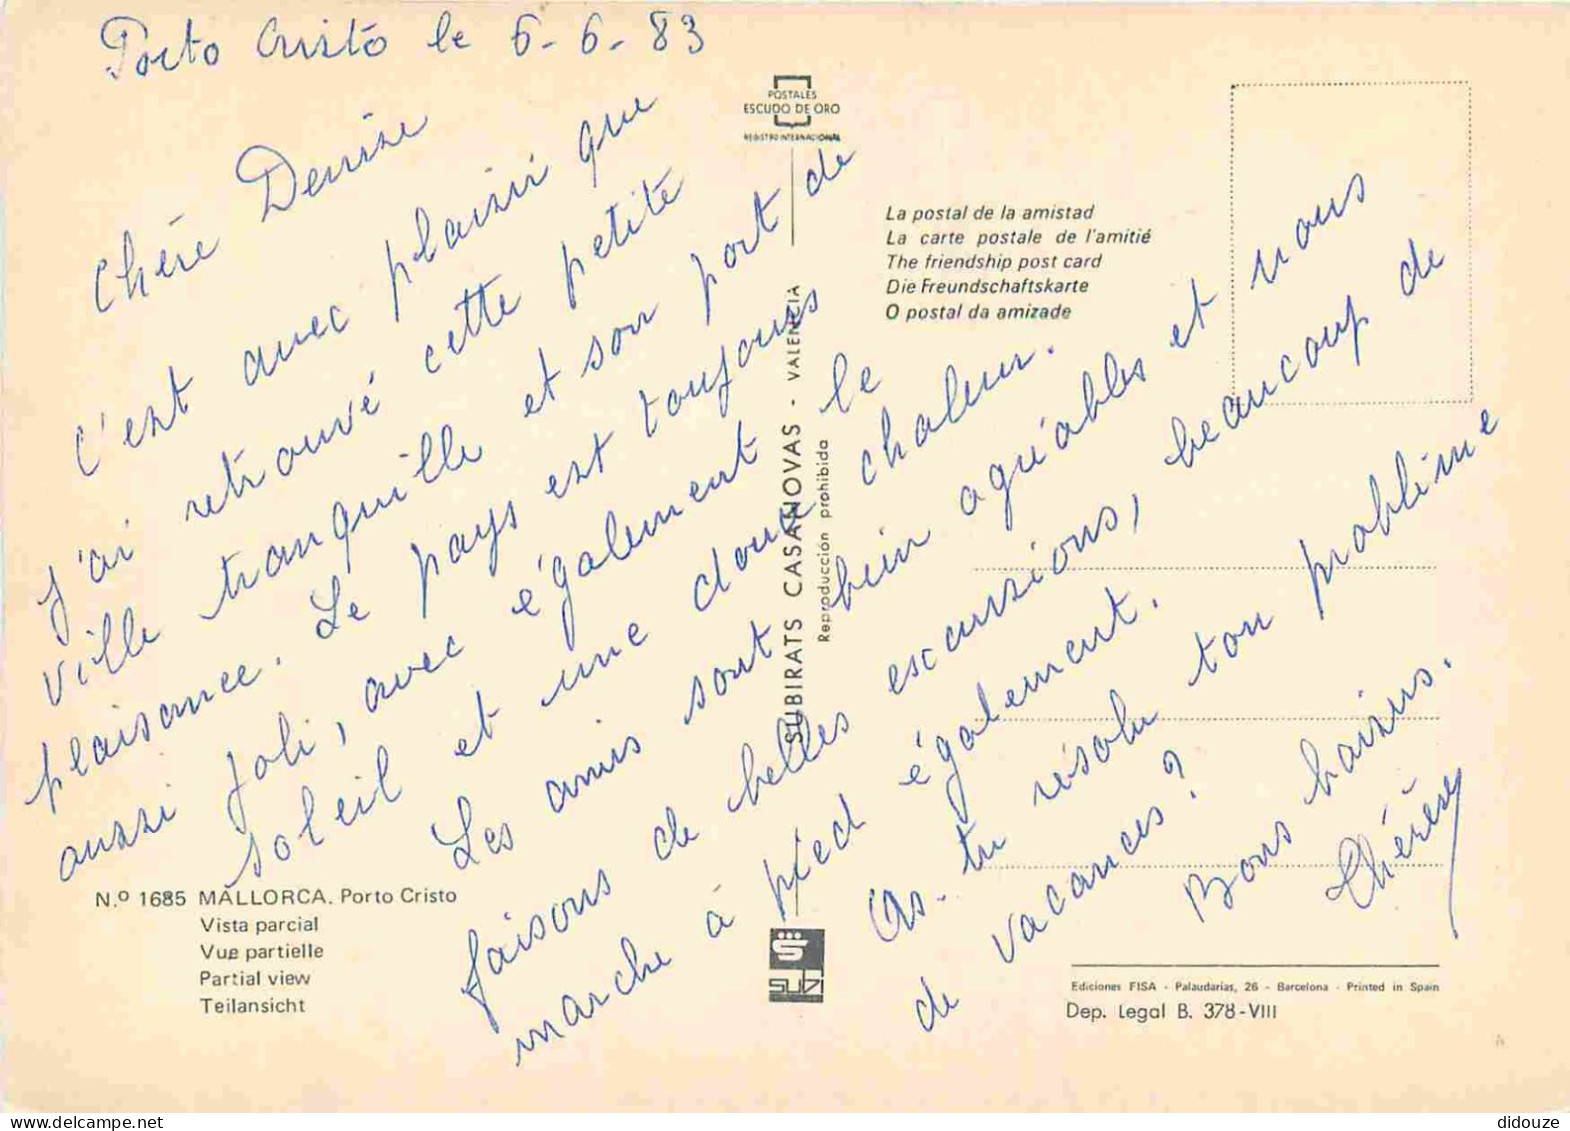 Porto Cristo le 6-6-83
Chère Denise
C'est avec plaisir que
j'ai retrouvé cette petite
ville tranquille et son port de
plaisance. Le pays est toujours
aussi joli, avec également le
soleil et une douce chaleur.
Les amis sont bien agréables et nous
faisons de belles excursions, beaucoup de
marche à pied également.
As-tu résolu ton problème
de vacances ?
Bons baisers.
Thérèse
POSTALES
ESCUDO DE ORO
REGISTRO INTERNACIONAL
La postal de la amistad
La carte postale de l'amitié
The friendship post card
Die Freundschaftskarte
O postal da amizade
SUBIRATS CASANOVAS - VALENCIA
Reproducción prohibida
N.º 1685 MALLORCA. Porto Cristo
Vista parcial
Vue partielle
Partial view
Teilansicht
S
SUBI
Ediciones FISA - Palaudarias, 26 - Barcelona - Printed in Spain
Dep. Legal B. 378-VIII
didouze